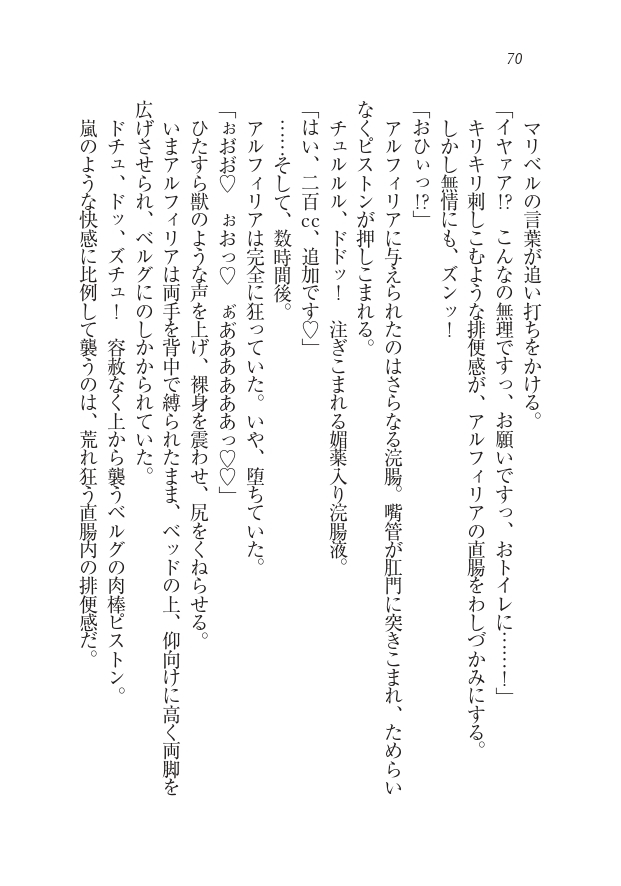 70
マリベルの言葉が追い打ちをかける。
「イヤァア!?　こんなの無理ですっ、お願いですっ、おトイレに……！」
キリキリ刺しこむような排便感が、アルフィリアの直腸をわしづかみにする。
しかし無情にも、ズンッ！
「おひぃっ!?」
アルフィリアに与えられたのはさらなる浣腸。嘴管が肛門に突きこまれ、ためらい
なくピストンが押しこまれる。
チュルルル、ドドッ！　注ぎこまれる媚薬入り浣腸液。
「はい、二百cc、追加です♡」
……そして、数時間後。
アルフィリアは完全に狂っていた。いや、堕ちていた。
「ぉおお♡　ぉおっ♡　ぁあああああっ♡♡」
ひたすら獣のような声を上げ、裸身を震わせ、尻をくねらせる。
いまアルフィリアは両手を背中で縛られたまま、ベッドの上、仰向けに高く両脚を
広げさせられ、ベルグにのしかかられていた。
ドチュ、ドッ、ズチュ！　容赦なく上から襲うベルグの肉棒ピストン。
嵐のような快感に比例して襲うのは、荒れ狂う直腸内の排便感だ。